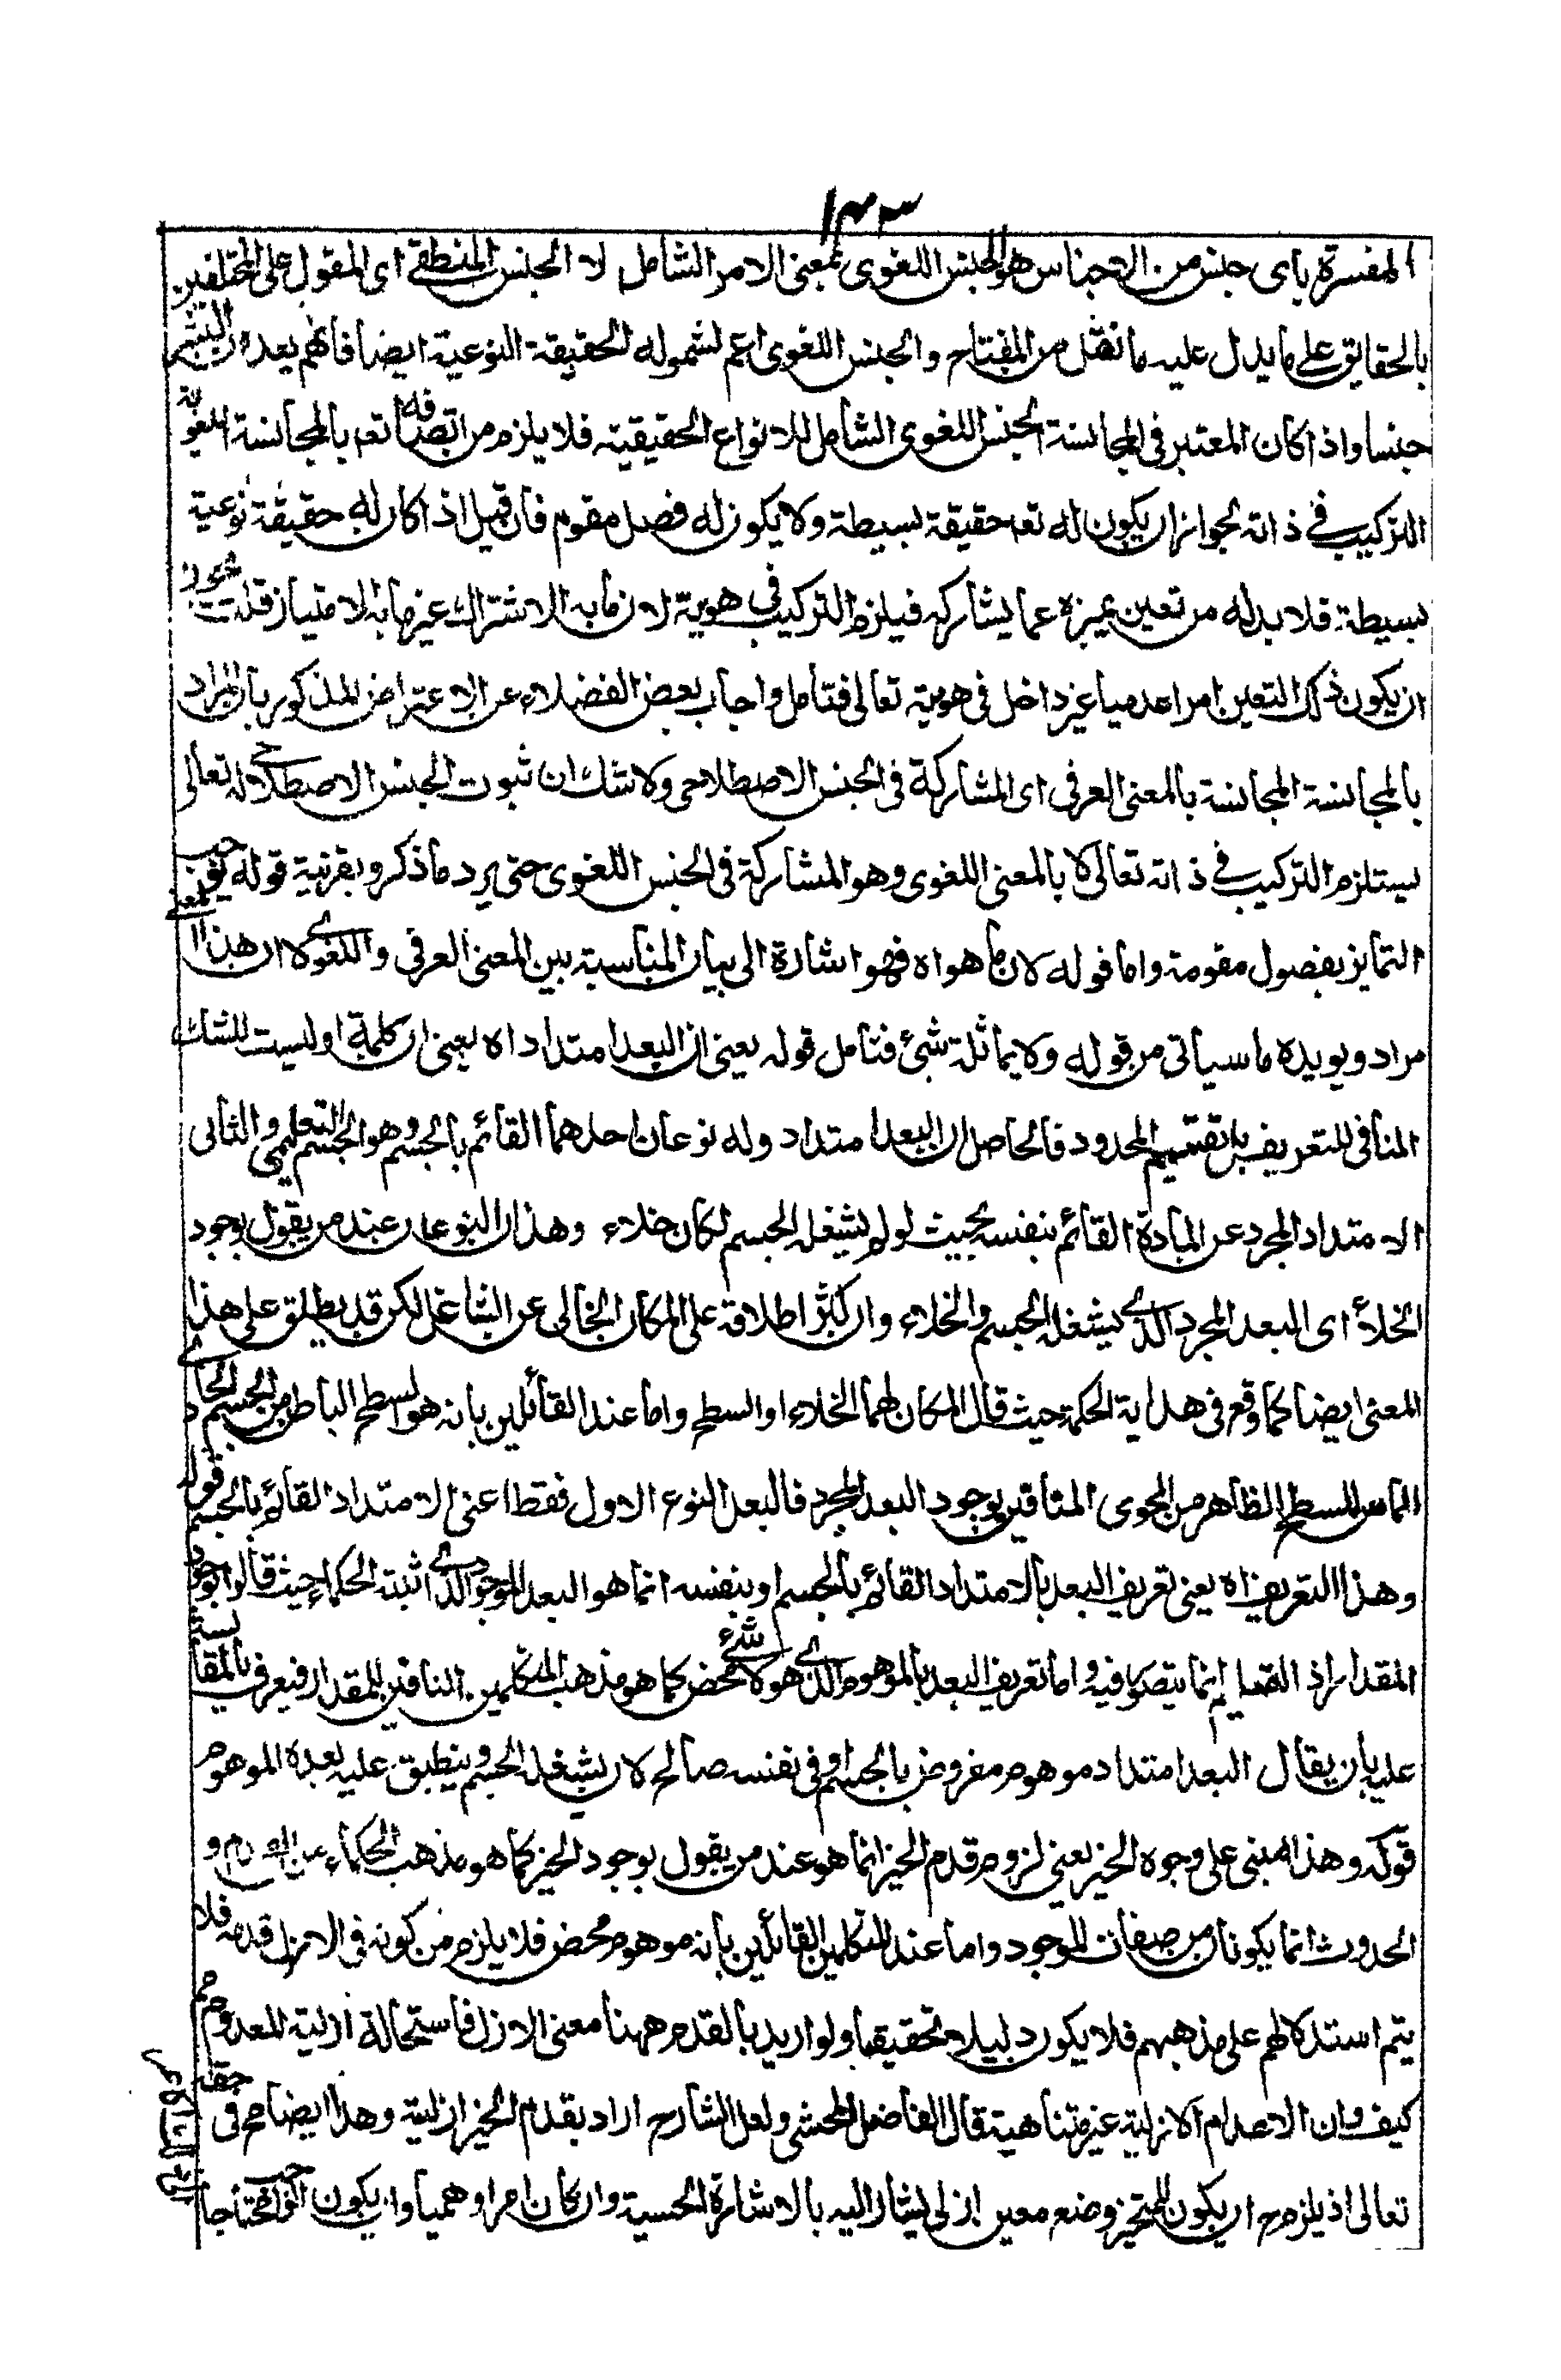 ١٤٣
المفسرة باى جنس من الاجناس هو الجنس اللغوى بمعنى الامر الشامل لا الجنس المنطقے اى المقول على المختلفين
بالحقايق على ما يدل عليه ما نقل من المفتاح والجنس اللغوى اعم لشموله الحقيقة النوعية ايضا فانهم يعدون البشر
جنسا واذا كان المعتبر فى المجانسة الجنس اللغوى الشامل للانواع الحقيقيته فلا يلزم من اتصافه تعم بالمجانسة اللغوية
التركيب فے ذاته لجواز ان يكون له تعم حقيقة بسيطة ولا يكون له فصل مقوم فان قيل اذا كان له حقيقة نوعية
بسيطة فلا بد له من تعين يميزه عما يشاركه فيلزم التركيب فى هويته لان ما به الاشتراك غير ما به الامتياز قلت يجوز
ان يكون ذلك التعين امرا عدميا غير داخل فى هويته تعالى فتامل واجاب بعض الفضلاء عن الاعتراض المذكور بان المراد
بالمجانسة المجانسة بالمعنى العرفى اى المشاركة فى الجنس الاصطلاحى ولا شك ان ثبوت الجنس الاصطلاحے له تعالى
يستلزم التركيب فے ذاته تعالى لا بالمعنى اللغوى وهو المشاركة فى الجنس اللغوى حتى يرد ما ذكر وبقرنية قوله يوجب
التمايز بفصول مقومة واما قوله لان ما هو اه فهو اشارة الى بيان المناسبة بين المعنى العرفى واللغوے لا ان هذا المعنى
مراد ويويده ما سياتى من قوله ولا يماثله شئ فتامل قوله يعنى ان البعد امتداد اه يعنى ان كلمة او ليست للشك
المنافى للتعريف بل لتقسيم المحدود فالحاصل ان البعد امتداد وله نوعان احدهما القائم بالجسم وهو الجسم التعليمى والثانى
الامتداد المجرد عن المادة القائم بنفسه بحيث لو لم يشغله الجسم لكان خلاء وهذان النوعان عند من يقول بوجود
الخلأ اى البعد المجرد الذے يشغله الجسم والخلاء وان كثر اطلاقه على المكان الخالى عن الشاغل لكن قد يطلق على هذا
المعنى ايضا كما وقع فى هداية الحكمة حيث قال المكان لهما الخلاء او السطح واما عند القائلين بانه هو السطح الباطن من الجسم الحاوے
المماس للسطح الظاهر من المحوى النافين بوجود البعد المجرد فالبعد النوع الاول فقط اعنى الامتداد القائم بالجسم قوله
وهذا التعريف اه يعنى تعريف البعد بالامتداد القائم بالجسم او بنفسه انما هو البعد الموجود الذے اثبته الحكماء حيث قالوا بوجود
المقدار اذ القسمة انما يتصور فيه واما تعريف البعد بالموهوم الذے هو لا شئے محض كما هو مذهب المتكلمين النافين للمقدار فيعرف بالمقايسة
عليه بان يقال البعد امتداد موهوم مفروض بالجسم او فى نفسه صالح لان يشغله الجسم وينطبق عليه بعده الموهوم
قوله وهذا مبنى على وجود الحيز يعنى لزوم قدم الحيز انما هو عند من يقول بوجود الحيز كما هو مذهب الحكماء اذ القدم و
الحدوث انما يكونان من صفات الموجود واما عند المتكلمين القائلين بانه موهوم محض فلا يلزم من كونه فى الازل قدمه فلا
يتم استدلالهم على مذهبهم فلا يكون دليلا تحقيقيا ولو اريد بالقدم ههنا معنى الازل فاستحالة ازلية المعدوم مم
كيف وان الاعدام الازلية غير متناهية قال الفاضل المحشى ولعل الشارح اراد بقدم الحيز ازليته وهذا ايضا مح فى حقه
تعالى اذ يلزم ح ان يكون للمتحيز وضع معين ازلى ليشار اليه بالاشارة الحسية وان كان امرا وهميا وان يكون الواجب محتاجا